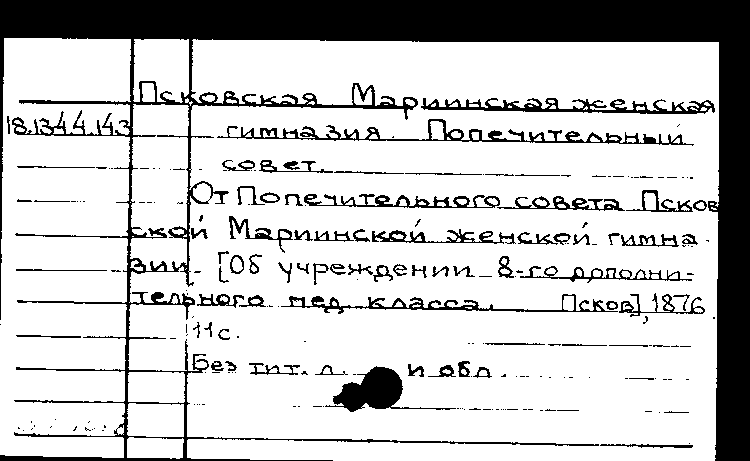 Псковская Мариинская женская
18.1344.143 гимназия. Попечительный
совет.
От Попечительного совета Псков
ской Мариинской женской гимна-
зии. [Об учреждении 8-го дополни-
тельного пед. класса. Псков], 1876.
11 с.
Без тит. л. и обл.